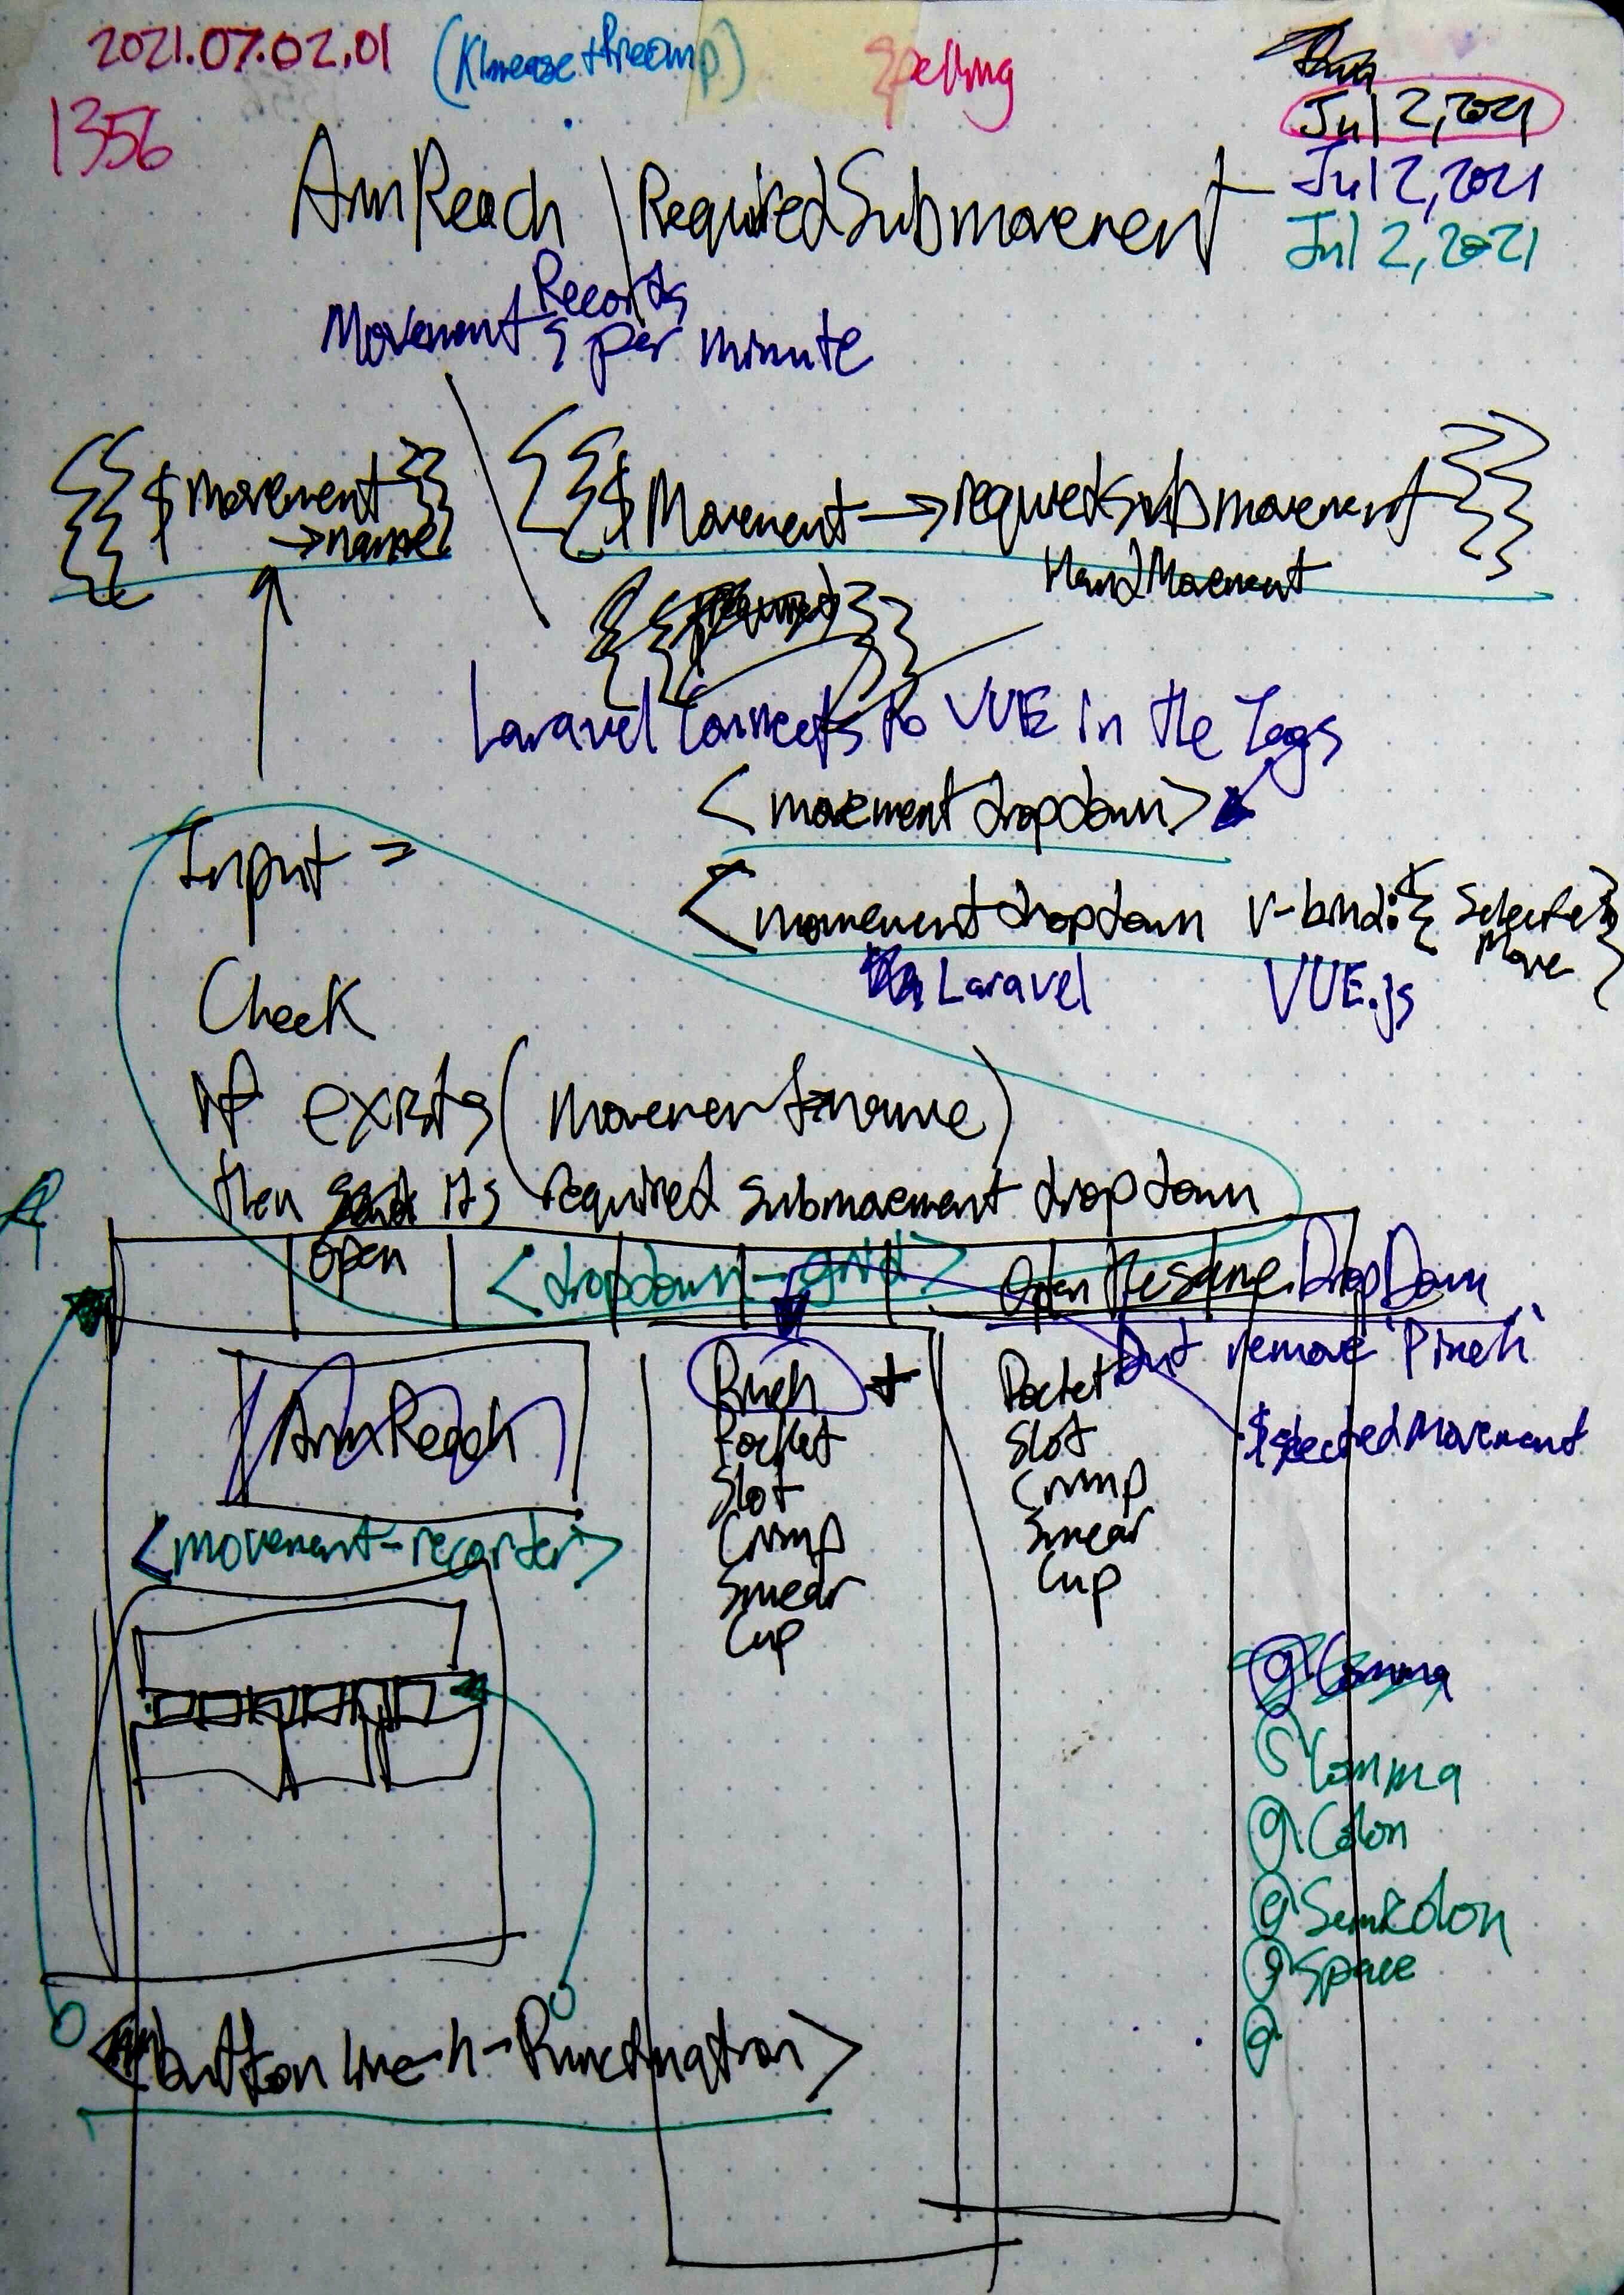 2021.07.02.01
Spelling
Jul 2, 2021
1356
Jul 2, 2021
Jul 2, 2021
ArmReach \ RequiredSubmovement
Records
Movements per minute
{{ $movement
→name }}
{{ $Movement → requiredsubmovement }}
HandMovement
Laravel Connects to VUE in the Tags
<movementdropdown>
Input =
<movementdropdown v-bind:{{ Selected
Move }}
Laravel VUE.js
Check
if exists (movement→name)
then its required submovement dropdown
open
<dropdown-grid>
Open the same DropDown
but remove 'Pinch'
ArmReach
Pinch +
Pocket
Slot
Crimp
Smear
Cup
Pocket
Slot
Crimp
Smear
Cup
$selectedMovement
<movement-recorder>
Comma
Comma
Colon
Semicolon
Space
<button line-h-Punctuation>